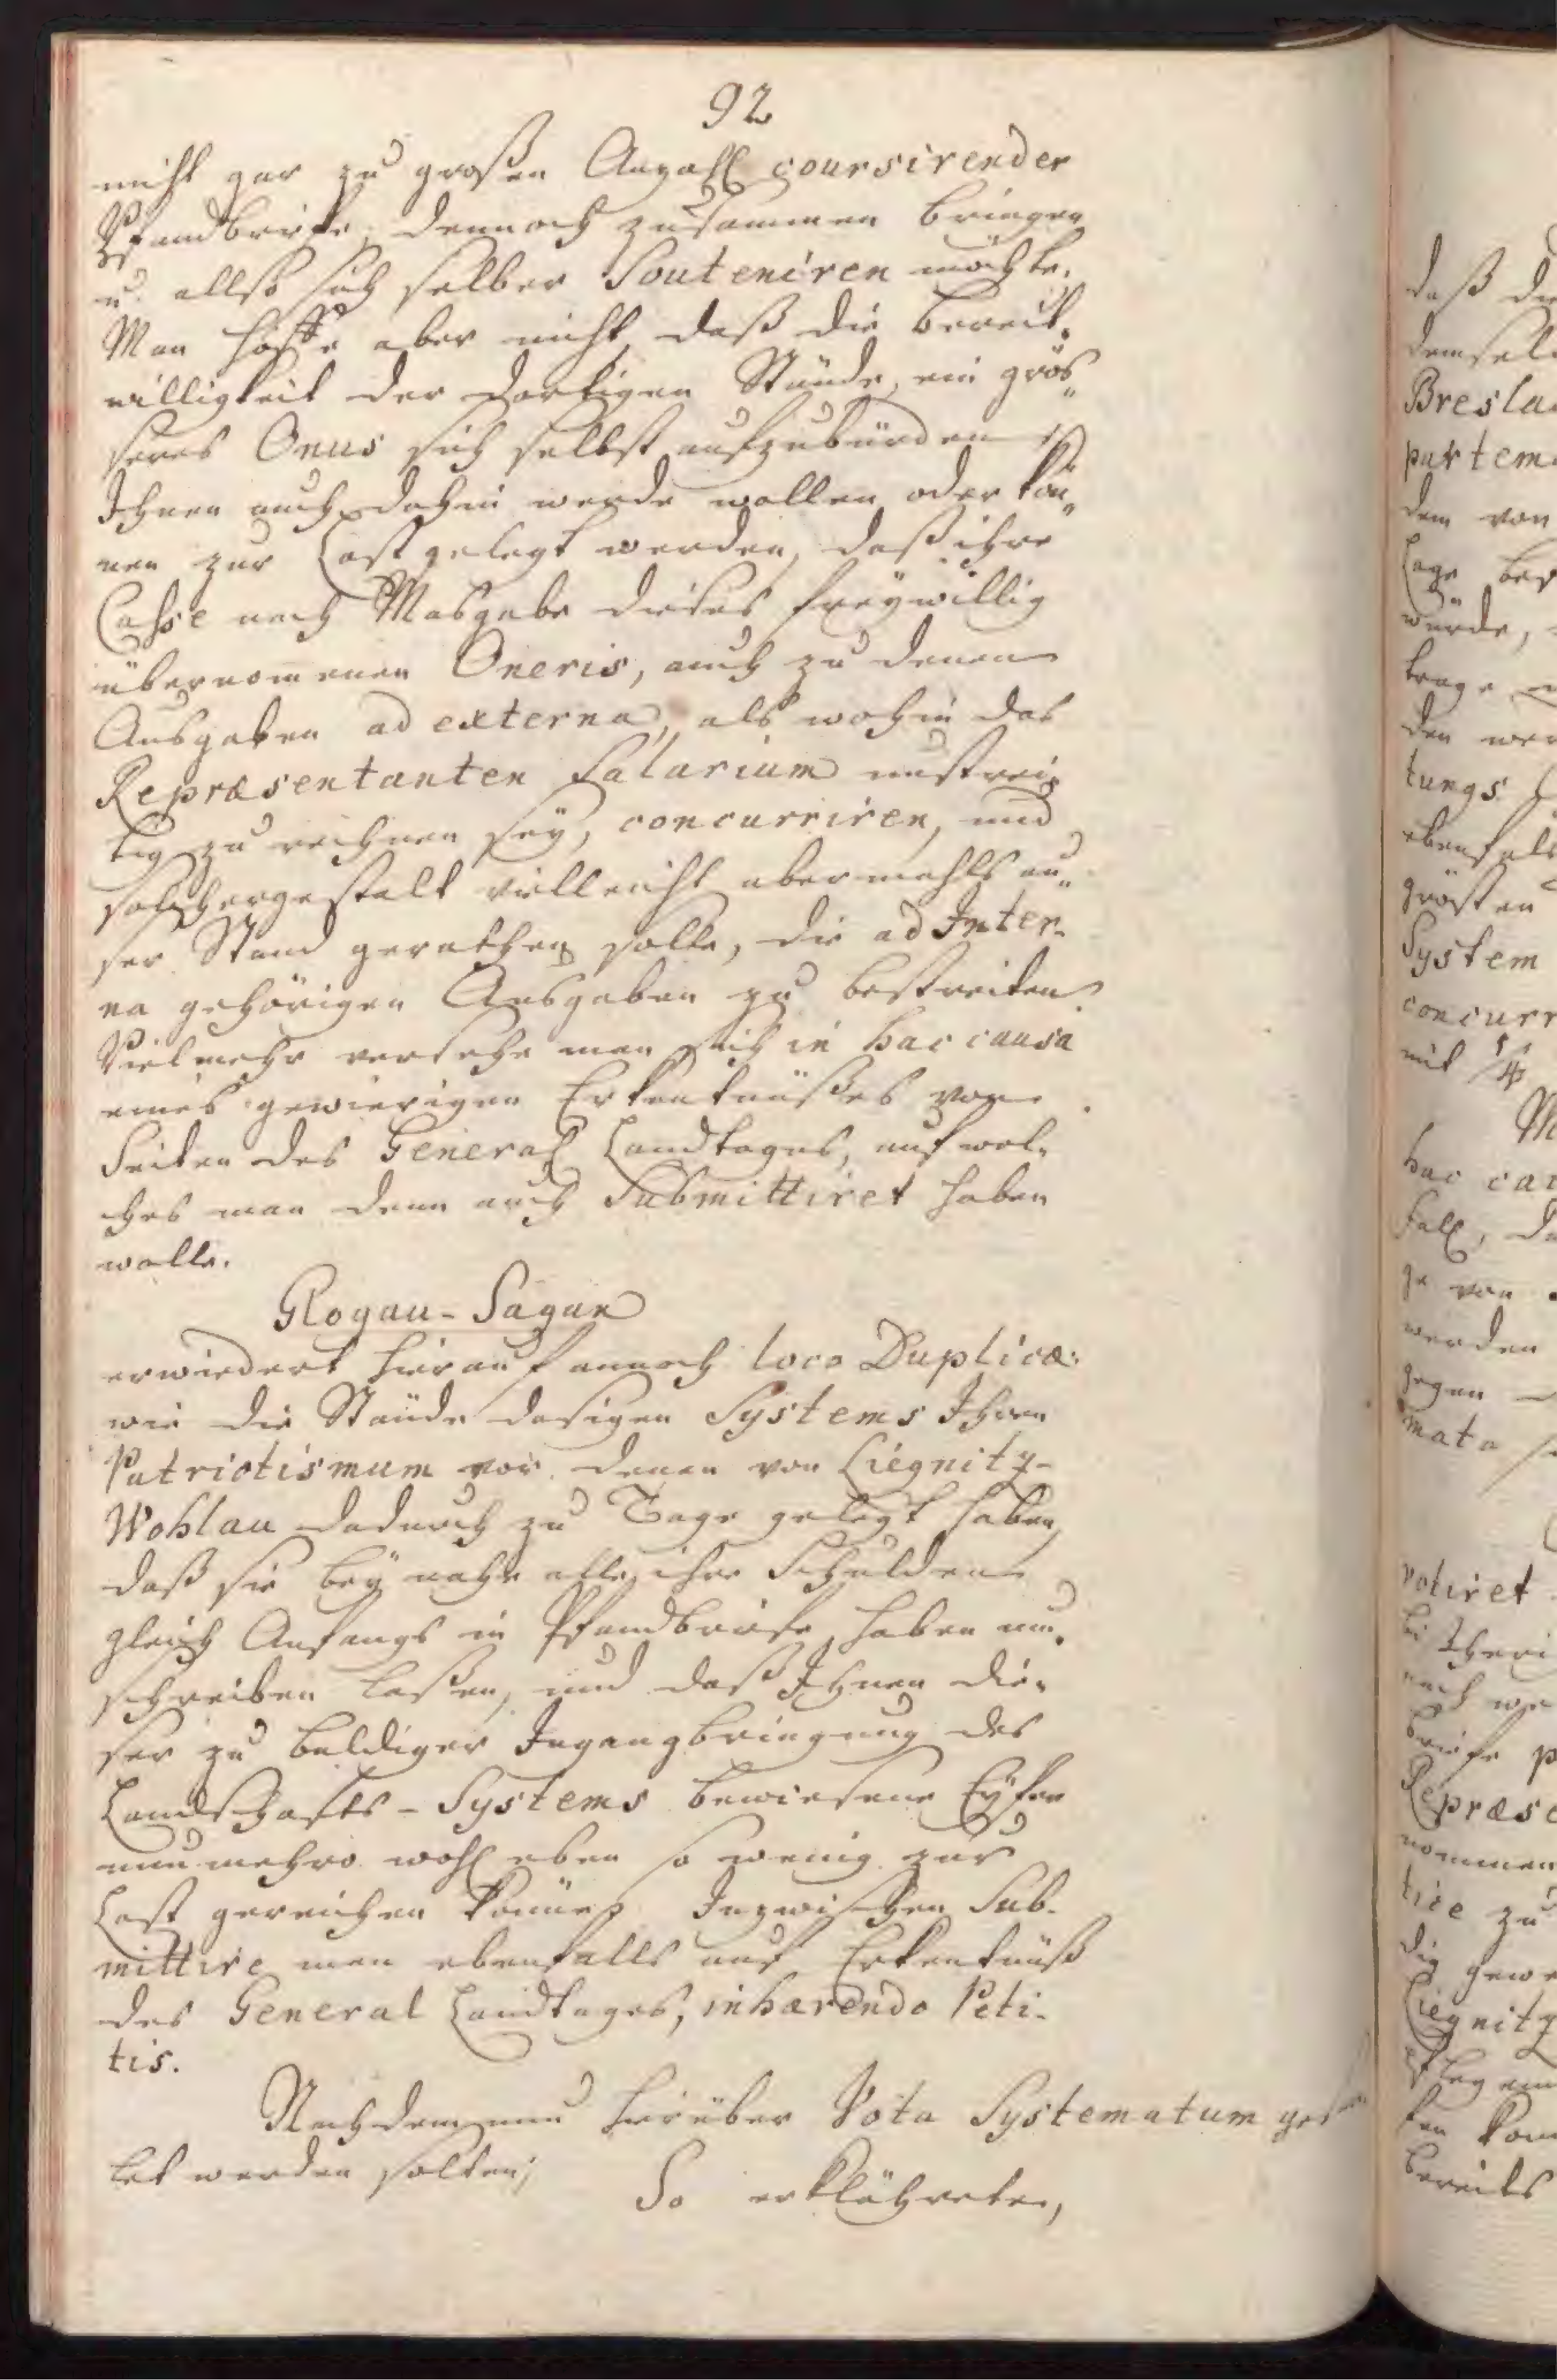 92
nicht gar zu großen Anzahl coursirender
Pfandbriefe, dennoch zusammen bringen
u. allso sich selber Souteniren möchte.
Man hoffe aber nicht, daß die bereit-
willigkeit der dortigen Stände, ein grös„
seres Onus sich selbst aufzubürden
Ihnen auch dahin werde wollen oder kön„
nen zur Last gelegt werden, daß ihre
Casse nach Masgabe dieses freywillig
übernommenen Oneris, auch zu denen
Ausgaben ad externa, als wohin das
Repræsentanten Salarium unstrei-
tig zu rechnen sey, concurriren, und
solchergestalt vielleicht abermahls au„
ser Stand gerathen solle, die ad Inter-
na gehörigen Ausgaben zu bestreiten
Vielmehr versehe man sich in hac causa
eines gewierigen Erkentnüßes von
Seiten des General Landtages, auf wel-
ches man denn auch Submittiret haben
wolle.
Glogau-Sagan
erwiedert hierauf annoch loco Duplicæ:
wie die Stände dasigen Systems Ihren
Patriotismum vor denen von Liegnitz-
Wohlau dadurch zu Tage gelegt haben,
daß sie bey nahe alle ihre Schulden
gleich Anfangs in Pfandbriefe haben um-
schreiben laßen, und daß Ihnen die-
ser zu baldiger Ingangbringung des
Landschafts-Systems bewiesene Eyfer
nunmehro wohl eben so wenig zur
Last gereichen könne. Inzwischen Sub-
mittire man ebenfalls auf Erkentnüß
des General Landtages, inhærendo Peti-
tis.
Nachdem nun hierüber Vota Systematum
let werden solten;
So erklähreten,
daß
Bresla
dem von
würde,
den wer
tungs
ebenfals
grösten
System
concurr
mit 1/4
hac cau
ge von
werden
gegen
mata
votiret
Repræse
nommen
Liegnitz
bereits